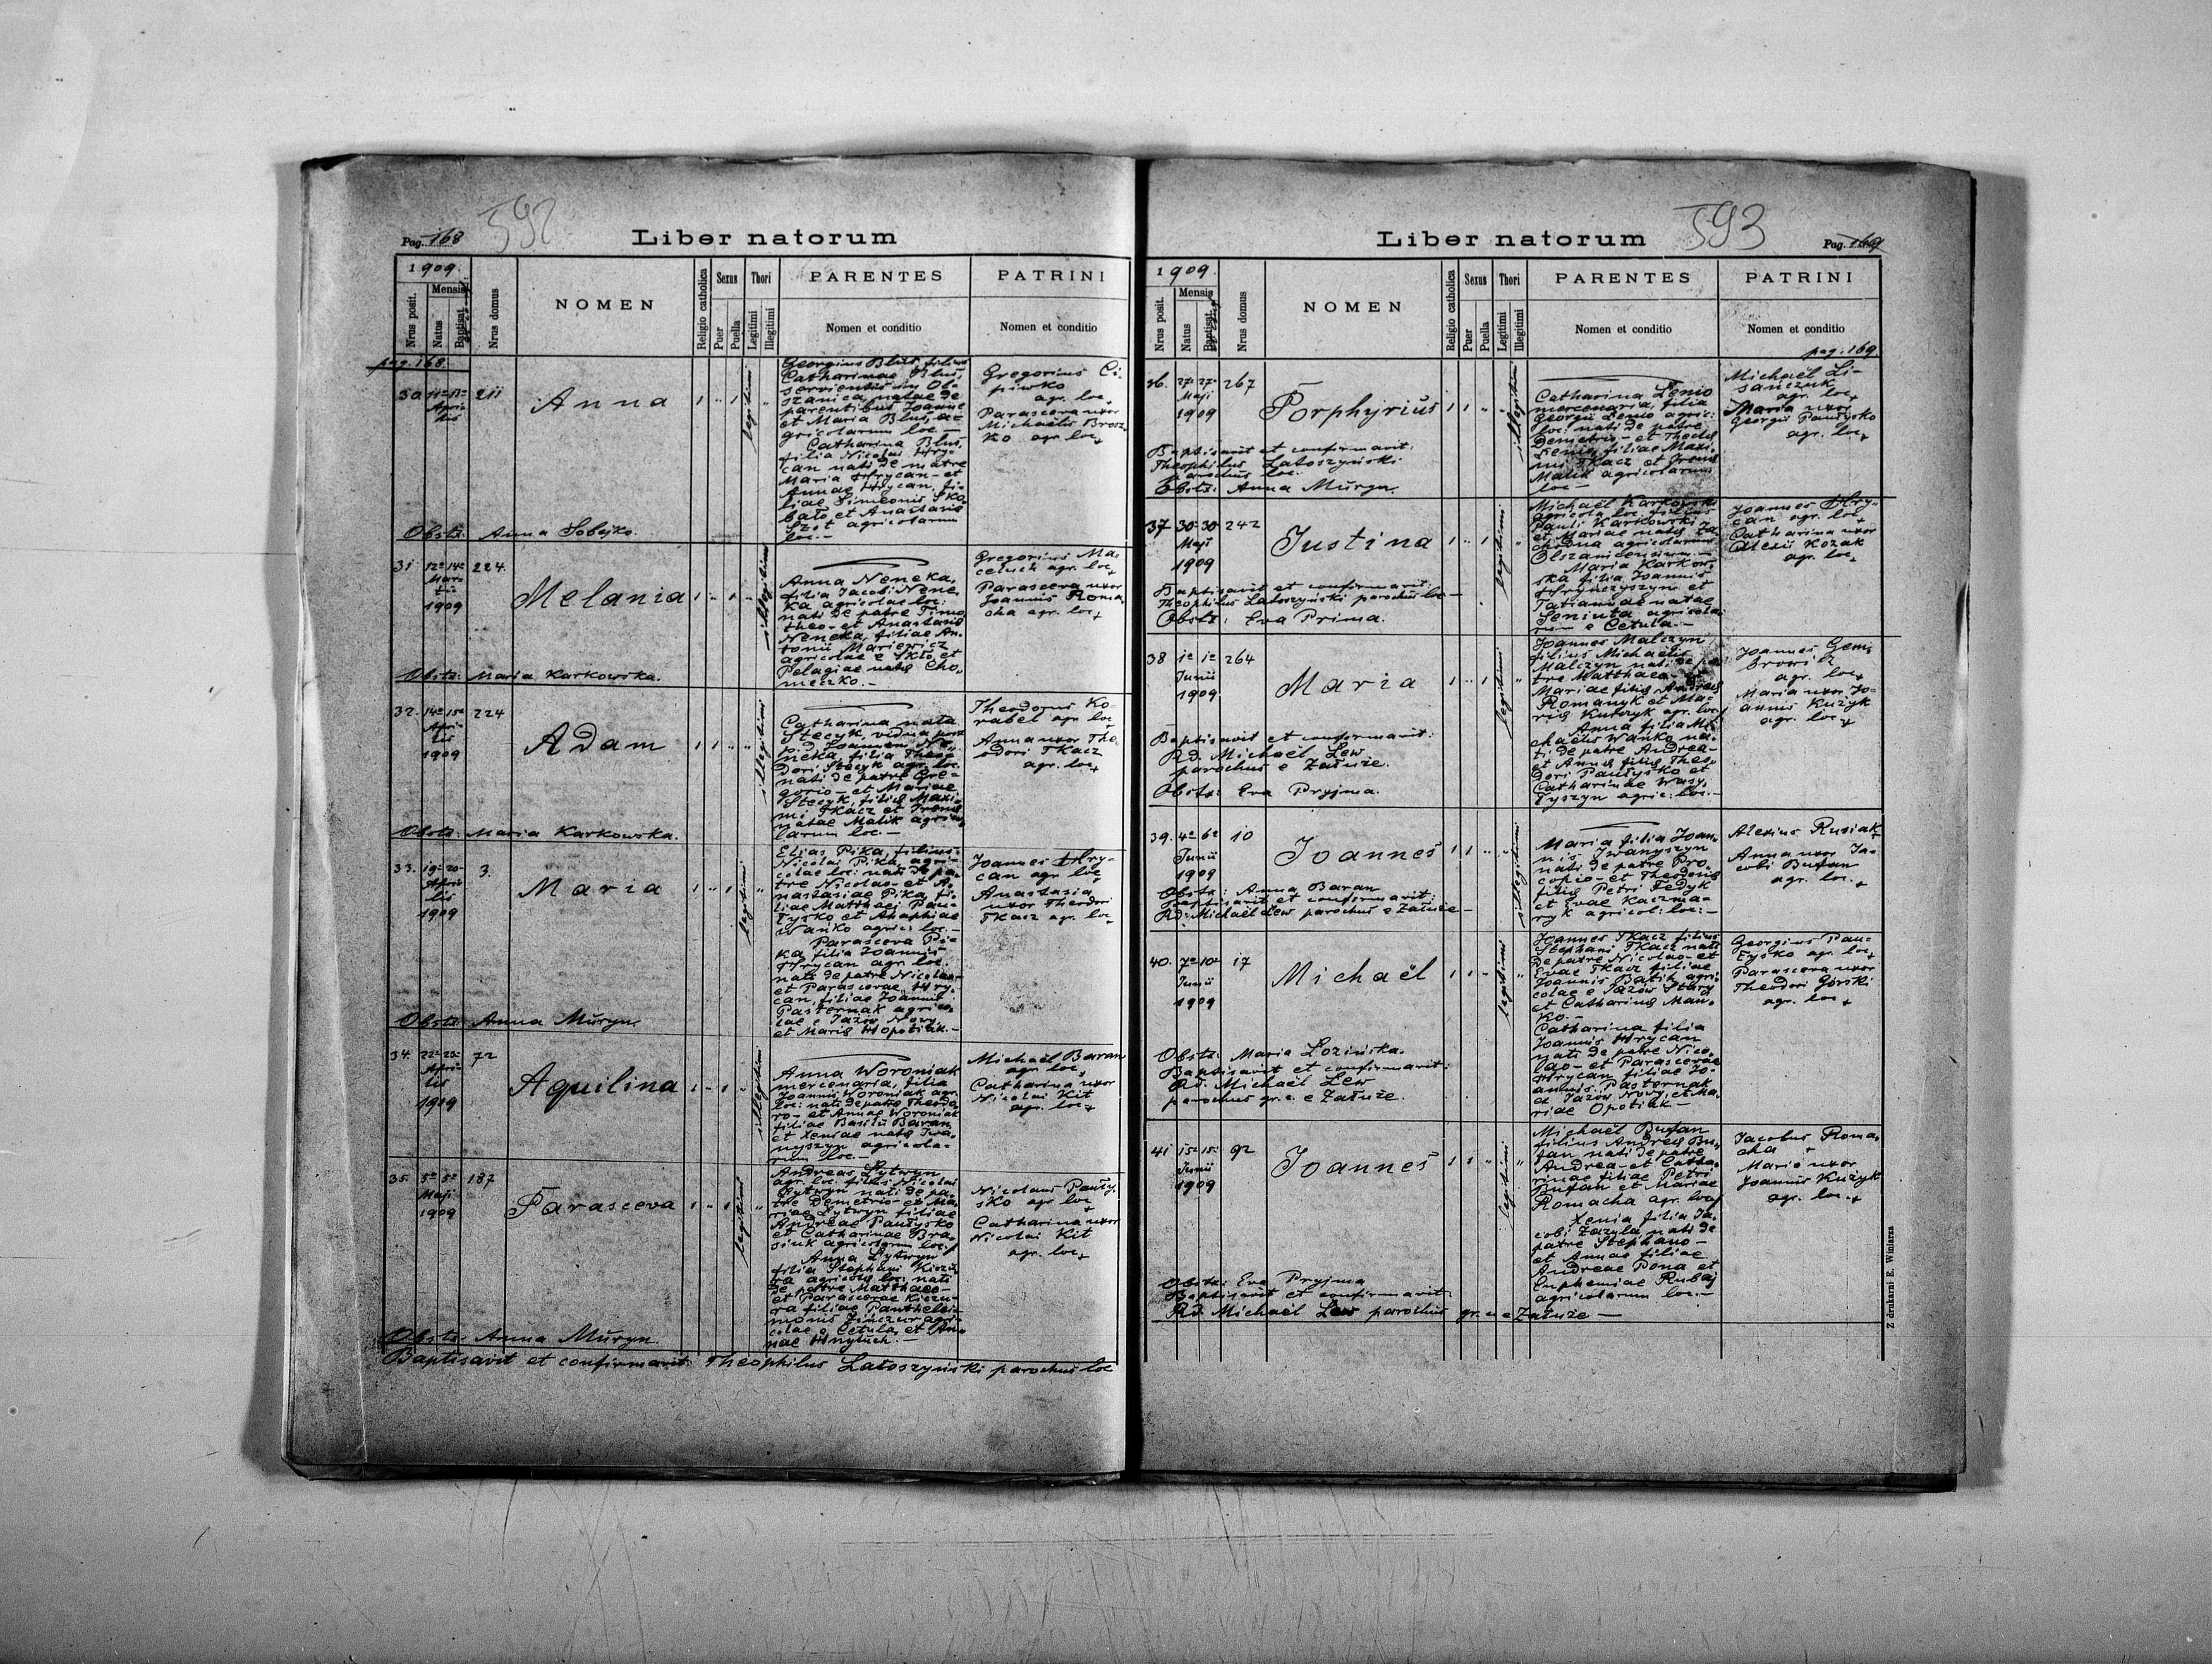 Pag. 168
592
Liber natorum
1909.
Nrus posit.
Mensis
Natus
Baptisat.
Nrus domus
NOMEN
Religio catholica
Sexus
Puer
Puella
Thori
Legitimi
Illegitimi
PARENTES
Nomen et conditio
PATRINI
Nomen et conditio
pag. 168.
30
Aprilis
211
Anna
legitimi
Georgius Blus, filius
Catharinae Blus,
servientis in Ol-
szanica, natae de
parentibus Joanne
et Maria Blus, a-
gricolarum loc.—
Catharina Blus,
filia Nicolai Hry-
can nati de matre
Maria Hrycan- et
Annae Hrycan, fi-
liae Simeonis Sko-
bało et Anastasiae
Szot agricolarum
loc.—
Gregorius Ci-
piwko
agr. loc.
Parasceva uxor
Michaëlis Brosz-
ko agr. loc.
Obstz. Anna Sobejko.
31
12a 14a
Martii
1909
224.
Melania
illegitimi
Anna Neneka,
filia Jacobi Nene-
ka agricolae loc:
nati de patre Timo-
theo- et Anastasiae
Neneka, filiae An-
tonii Mariewicz
agricolae e Skło et
Pelagiae natae Cho-
meczko.—
Gregorius Ma-
celuch agr. loc.
Parasceva uxor
Joannis Roma-
cha agr. loc.
Obstz: Maria Karkowska.
32.
14a 15a
Aprilis
1909
224
Adam
illegitimi
Catharina nata
Stecyk, vidua post
p. d. Joannem Ne-
neka, filia Theo-
dori Stecyk agr. loc.
nati de patre Gre-
gorio- et Mariae
Stecyk, filiae Maxi-
mi Tkacz et Irenae
natae Malik agrico-
larum loc.—
Theodorus Ko-
rabel agr. loc.
Anna uxor Theo-
dori Tkacz
agr. loc.
Obstz: Maria Karkowska.
33.
19a 20a
Aprilis
1909
3.
Maria
legitimi
Elias Pika, filius
Nicolai Pika, agri-
colae loc: nati de pa-
tre Nicolao- et A-
nastasiae Pika, fi-
liae Matthaei Pau-
łysko et Ahaphiae
Wańko agric: loc.—
Parasceva Pi-
ka, filia Joannis
Hrycan agr. loc.
nati de patre Nicolao-
et Parascevae Hry-
can, filiae Joannis
Pasternak agrico-
lae e Jazów Nowy
et Mariae Hopotiak.—
Joannes Hry-
can agr. loc.
Anastasia
uxor Theodori
Tkacz agr. loc.
Obstz. Anna Muryn.
34.
22a 23a
Aprilis
1909
72
Aquilina
illegitimi
Anna Woroniak
mercenaria, filia
Joannis Woroniak agr.
loc: nati de patre Theodo-
ro- et Annae Woroniak
filiae Basilii Baran
et Xeniae natae Iwa-
nyszyn agricola-
rum loc.—
Michaël Baran
agr. loc.
Catharina uxor
Nicolai Kit
agr. loc.
35.
5a 5a
Maji
1909
187
Parasceva
legitimi
Andreas Lytwyn
agr. loc. filius Nicolai
Lytwyn nati de pa-
tre Demetrio- et Ma-
riae Lytwyn filiae
Andreae Paułysko
et Catharinae Bra-
siuk agricolarum loc.
Anna Lytwyn
filia Stephani Kiczu-
ra agricolae loc: nati
de patre Matthaeo-
et Parascevae Kiczu-
ra filiae Panthelei-
monis Zinczur agri-
colae e Cetula, et An-
nae Hnytuch.—
Nicolaus Pauły-
sko agr. loc.
Catharina uxor
Nicolai Kit
agr. loc.
Obstz. Anna Muryn.
Baptisavit et confirmavit: Theophilus Latoszyński parochus loc
Liber natorum
593
Pag. 169
1909.
Nrus posit.
Mensis
Natus
Baptisat.
Nrus domus
NOMEN
Religio catholica
Sexus
Puer
Puella
Thori
Legitimi
Illegitimi
PARENTES
Nomen et conditio
PATRINI
Nomen et conditio
pag. 169.
36.
27a 27a
Maji
1909
267
Porphyrius
illegitimi
Catharina Lenio
mercenaria, filia
Georgii Lenio agric:
loc: nati de patre
Demetrio- et Theclae
Lenio, filiae Maxi-
mi Tkacz et Irenae
Malik agricolarum
loc.—
Michaël Li-
sańczuk
agr. loc.
Maria uxor
Georgii Paułysko
agr. loc.
Baptisavit et confirmavit:
Theophilus Latoszyński
parochus loc.
Obstz: Anna Muryn.
37
30a 30a
Maji
1909
242
Justina
legitimi
Michaël Karkowski
agricola loc. filius
Pauli Karkowski
et Mariae natae Za-
chodna agricolarum
Olszanicensium.—
Maria Karkow-
ska filia Joannis
Hrynczyszyn et
Tatiannae natae
Seniuta agricola-
rum e Cetula.—
Joannes Hry-
can agr. loc.
Catharina uxor
Alexii Kozak
agr. loc.
Baptisavit et confirmavit:
Theophilus Latoszyński parochus loc—
Obstz: Eva Prima.
38
1a 1a
Junii
1909
264
Maria
legitimi
Joannes Malczyn
filius Michaëlis
Malczyn nati de pa-
tre Matthaeo- et
Mariae filiae Andreae
Romanyk et Ma-
riae Kutczyk agr. loc.
Anna filia Mi-
chaëlis Wańko na-
ti de patre Andrea-
et Annae filiae Theo-
dori Paułysko et
Catharinae Wasy-
łyszyn agric: loc.—
Joannes Gem-
browicz
agr. loc.
Maria uxor Jo-
annis Kuzyk
agr. loc.
Baptisavit et confirmavit:
Rd. Michaël Lew
parochus e Załuże.
Obstz: Eva Pryjma.
39.
4a 6a
Junii
1909
10
Joannes
illegitimi
Maria filia Joan-
nis Iwanyszyn
nati de patre Pro-
copio- et Theodosiae
filiae Petri Fedyk
et Evae Kaczma-
ryk agricol: loc:—
Alexius Rusiak
Anna uxor Ja-
cobi Bufan
agr. loc.
Obstz: Anna Baran
Baptisavit et confirmavit:
Rd. Michaël Lew parochus e Załuże—
40.
7a 10a
Junii
1909
17
Michaël
legitimi
Joannes Tkacz filius
Stephani Tkacz nati
de patre Nicolao- et
Evae Tkacz filiae
Joannis Batih agri-
colae e Jazów Stary
et Catharinae Man-
ko.—
Catharina filia
Joannis Hrycan
nati de patre Nico-
lao- et Parascevae
Hrycan filiae Jo-
annis Pasternak
de Jazów Nowy, et Ma-
riae Opotiak—
Georgius Pau-
łysko agr. loc.
Parasceva uxor
Theodori Górski
agr. loc.
Obstz: Maria Lozińska.
Baptisavit et confirmavit:
Rd. Michaël Lew
parochus gr. c. e Załuże.
41
15a 15a
Junii
1909
92
Joannes
legitimi
Michaël Bufan
filius Andreae Bu-
fan nati de patre
Andrea- et Catha-
rinae filiae Petri
Bufan et Mariae
Romacha agr. loc.
Xenia filia Ja-
cobi Zazula nati de
patre Stephano-
et Annae filiae
Andreae Pona et
Euphemiae Rubaj
agricolarum loc.—
Jacobus Roma-
cha
Maria uxor
Joannis Kuzyk
agr. loc.
Obstz: Eva Pryjma
Baptisavit et confirmavit:
Rd. Michaël Lew parochus gr. c. e Załuże—
Z drukarni E. Winiarza